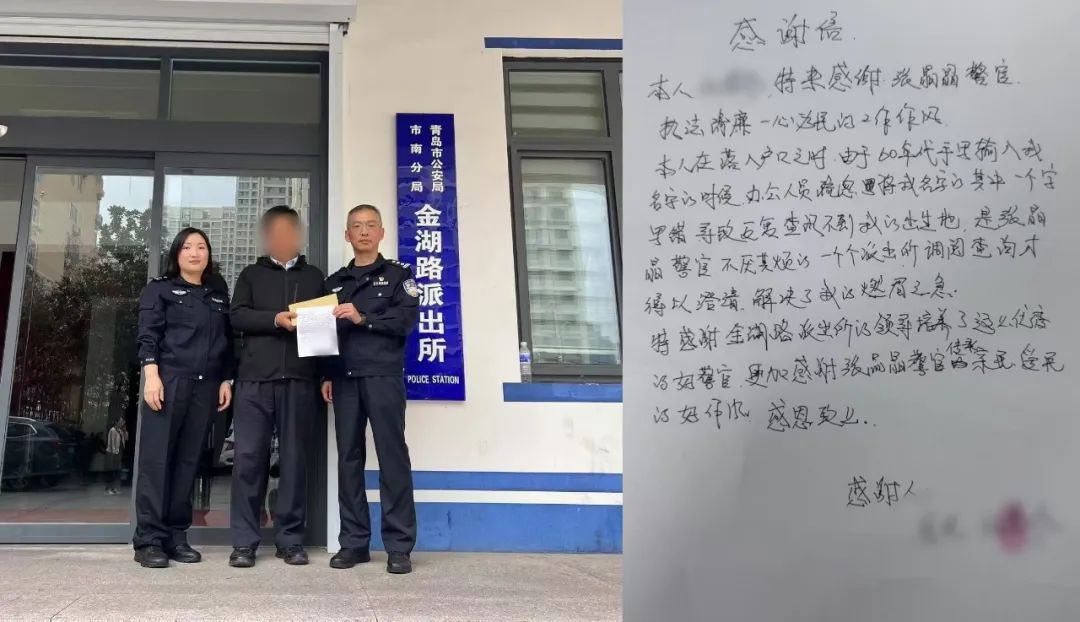 青岛市公安局
市南分局
金湖路派出所
POLICE STATION
感谢信.
本人,特来感谢张晶晶警官.
执法清廉一心为民的工作作风.
本人在落入户口之时,由于60年代手写输入我
名字的时候,办公人员疏忽将我名字的其中一个字
写错,导致反复查讯不到我的出生地,是张晶
晶警官不厌其烦的一个个派出所调阅查询才
得以澄清,解决了我的燃眉之急.
特感谢金湖路派出所的领导培养了这么优秀
的好警官,更加感谢张晶晶警官的亲民爱民
的好作风.感恩致上..
感谢人